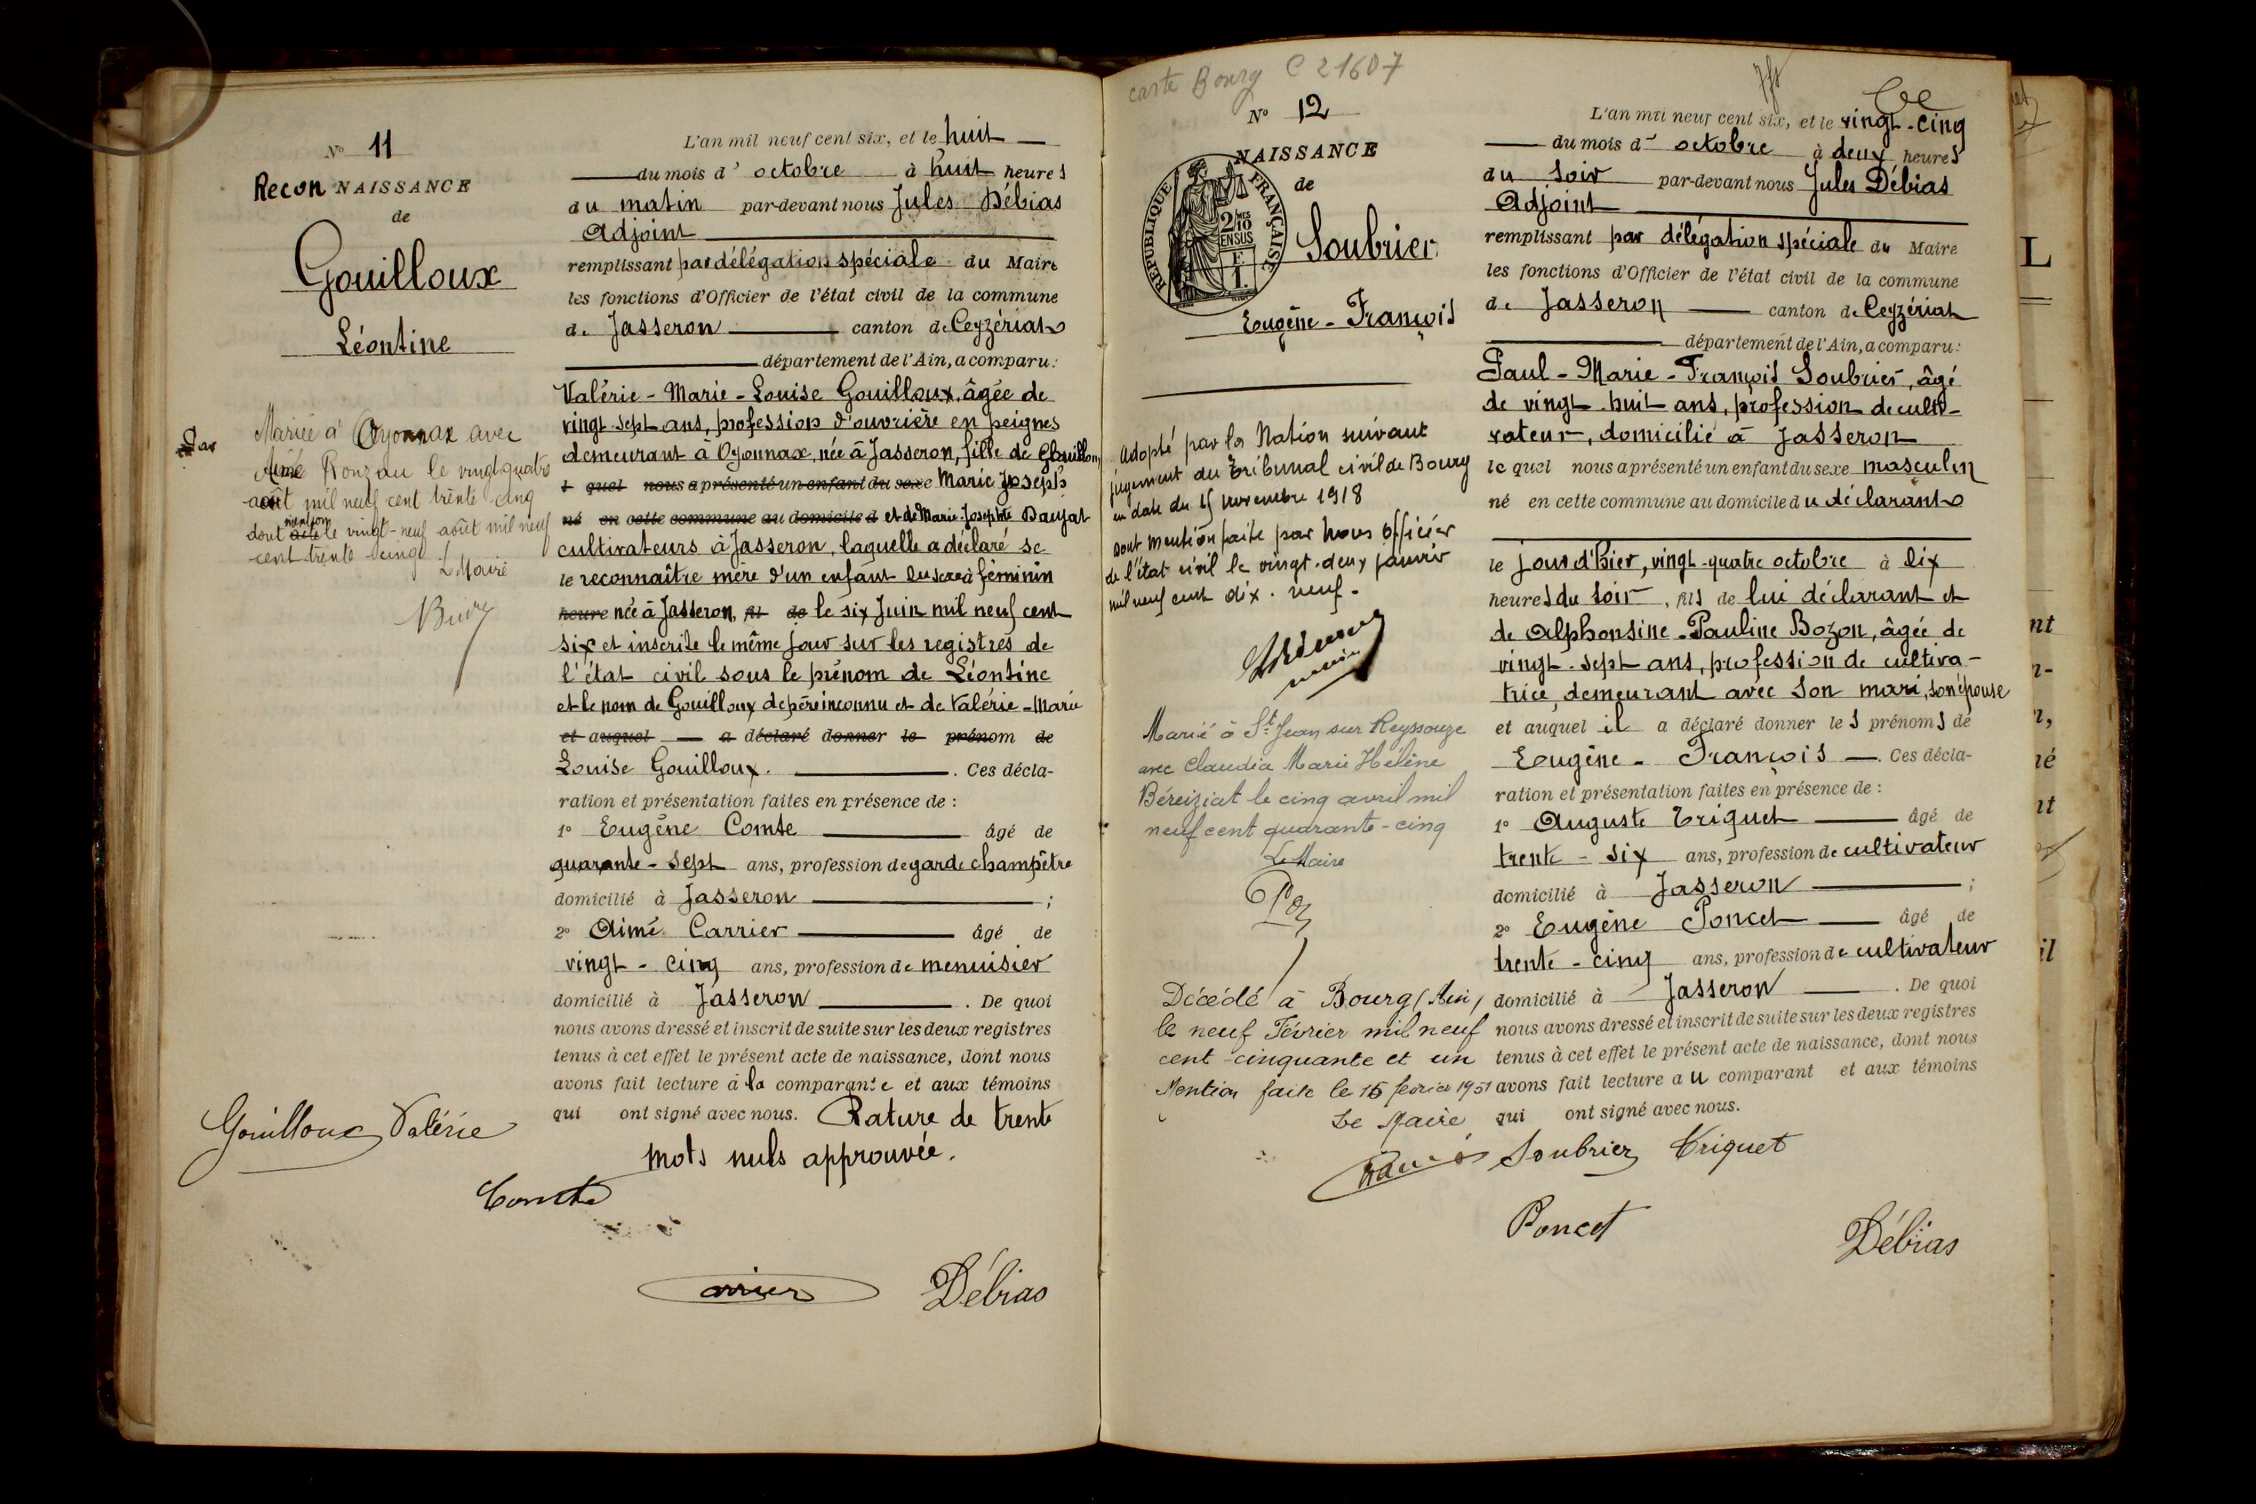 Nº 11
Recon NAISSANCE
de
Gouilloux
Léontine
Mariée à Oyonnax avec
Aimé Ronzau le vingt quatre
août mil neuf cent trente cinq
dont acte mention le vingt-neuf août mil neuf
cent trente cinq
L Maire
L'an mil neuf cent six, et le huit
du mois d' octobre à huit heures
du matin par-devant nous Jules Débias
Adjoint
remplissant par délégation spéciale du Maire
les fonctions d'Officier de l'état civil de la commune
de Jasseron canton de Ceyzériat
département de l'Ain, a comparu:
Valérie-Marie-Louise Gouilloux, âgée de
vingt-sept ans, profession d'ouvrière en peignes
demeurant à Oyonnax, née à Jasseron, fille de Gouilloux
l quel nous a présenté un enfant du sexe Marie Joseph
né en cette commune au domicile d et de Marie-Josephte Baujat
cultivateurs à Jasseron, laquelle a déclaré se
le reconnaître mère d'un enfant du sexe à féminin
heure née à Jasseron, fil de le six Juin mil neuf cent
six et inscrite le même jour sur les registres de
l'état civil sous le prénom de Léontine
et le nom de Gouilloux de père inconnu et de Valérie-Marie
et auquel a déclaré donner le prénom de
Louise Gouilloux. Ces décla-
ration et présentation faites en présence de :
1º Eugène Comte âgé de
quarante-sept ans, profession de garde champêtre
domicilié à Jasseron ;
2º Aimé Carrier âgé de
vingt-cinq ans, profession de menuisier
domicilié à Jasseron. De quoi
nous avons dressé et inscrit de suite sur les deux registres
tenus à cet effet le présent acte de naissance, dont nous
avons fait lecture à la comparante et aux témoins
qui ont signé avec nous. Rature de trente
mots nuls approuvée.
Gouilloux Valérie
Comte
Carrier
Débias
carte Bourg C 21607
Nº 12
NAISSANCE
de
RÉPUBLIQUE FRANÇAISE
2/10MES
EN SUS
F
1.
Soubrier
Eugène-François
Adopté par la Nation suivant
jugement du Tribunal civil de Bourg
en date du 15 novembre 1918
dont mention faite par nous officier
de l'état civil le vingt-deux janvier
mil neuf cent dix-neuf.
Marié à St Jean sur Reyssouze
avec Claudia Marie Hélène
Béreiziat le cinq avril mil
neuf cent quarante-cinq
Le Maire
Décédé à Bourg (Ain)
le neuf Février mil neuf
cent cinquante et un
Mention faite le 15 février 1951
Le Maire
L'an mil neuf cent six, et le vingt-cinq
du mois d' octobre à deux heures
du soir par-devant nous Jules Débias
Adjoint
remplissant par délégation spéciale du Maire
les fonctions d'Officier de l'état civil de la commune
de Jasseron canton de Ceyzériat
département de l'Ain, a comparu:
Paul-Marie-François Soubrier, âgé
de vingt-huit ans, profession de culti-
vateur, domicilié à Jasseron
lequel nous a présenté un enfant du sexe masculin
né en cette commune au domicile du déclarant
le jour d'hier, vingt-quatre octobre à dix
heures du soir, fils de lui déclarant et
de Alphonsine-Pauline Bozon, âgée de
vingt-sept ans, profession de cultiva-
trice, demeurant avec son mari, son épouse
et auquel il a déclaré donner les prénoms de
Eugène-François. Ces décla-
ration et présentation faites en présence de :
1º Auguste Triquet âgé de
trente-six ans, profession de cultivateur
domicilié à Jasseron ;
2º Eugène Poncet âgé de
trente-cinq ans, profession de cultivateur
domicilié à Jasseron. De quoi
nous avons dressé et inscrit de suite sur les deux registres
tenus à cet effet le présent acte de naissance, dont nous
avons fait lecture au comparant et aux témoins
qui ont signé avec nous.
Soubrier Triquet
Poncet
Débias